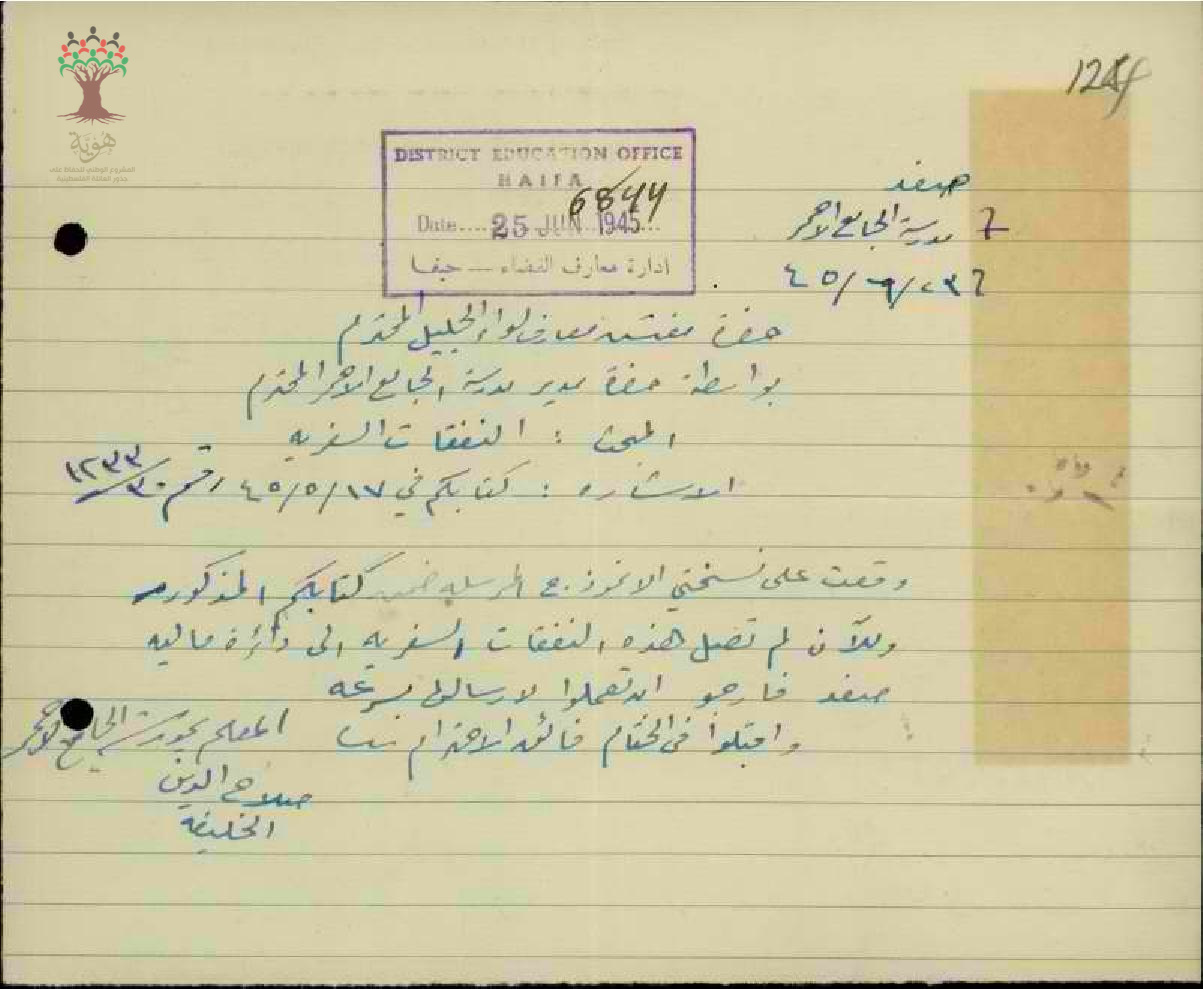 124
هوية
المشروع الوطني للحفاظ على
جذور العائلة الفلسطينية
DISTRICT EDUCATION OFFICE
HAIFA
6844
Date.... 25 JUN 1945...
ادارة معارف القضاء — حيفا
صفد
مدرسة الجامع الاحمر
٤٥/٦/٢٣
حضرة مفتش معارف لواء الجليل المحترم
بواسطة حضرة مدير مدرسة الجامع الاحمر المحترم
المبحث : النفقات السفريه
الاشاره : كتابكم في ٤٥/٥/١٧ رقم ١٢٣٣/٣٠
وقعت على نسختي الانموذج المرسله ضمن كتابكم المذكور
وللآن لم تصل هذه النفقات السفريه الى دائرة ماليه
صفد فارجو ان تعملوا لارسالها بسرعه
واقبلوا في الختام فائق الاحترام
المعلم بمدرسة الجامع الاحمر
صلاح الدين
الخليفه